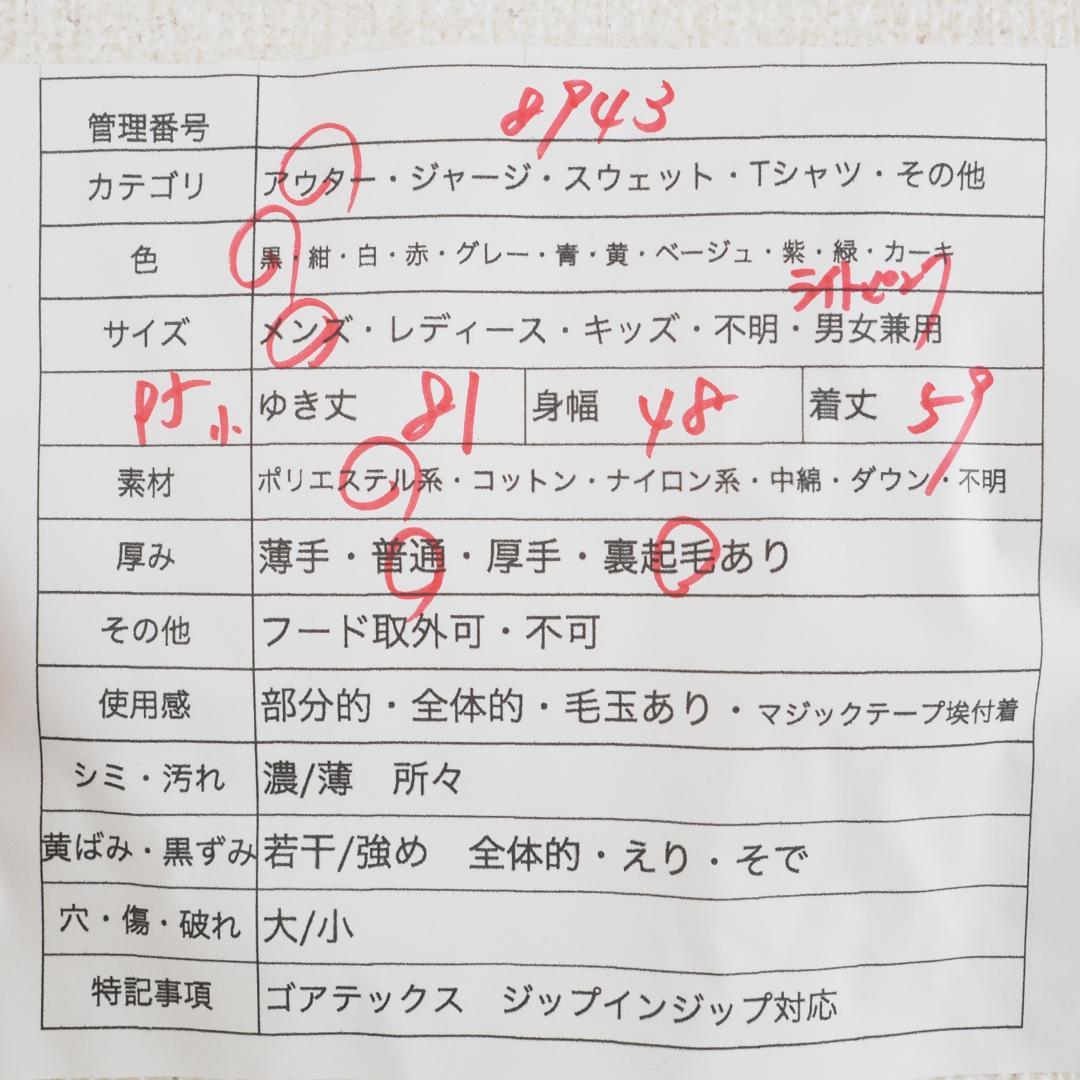 管理番号 8943
カテゴリ アウター・ジャージ・スウェット・Tシャツ・その他
色 黒・紺・白・赤・グレー・青・黄・ベージュ・紫・緑・カーキ
ライトピンク
サイズ メンズ・レディース・キッズ・不明・男女兼用
小 ゆき丈 81 身幅 48 着丈 59
素材 ポリエステル系・コットン・ナイロン系・中綿・ダウン・不明
厚み 薄手・普通・厚手・裏起毛あり
その他 フード取外可・不可
使用感 部分的・全体的・毛玉あり・マジックテープ埃付着
シミ・汚れ 濃/薄 所々
黄ばみ・黒ずみ 若干/強め 全体的・えり・そで
穴・傷・破れ 大/小
特記事項 ゴアテックス ジップインジップ対応